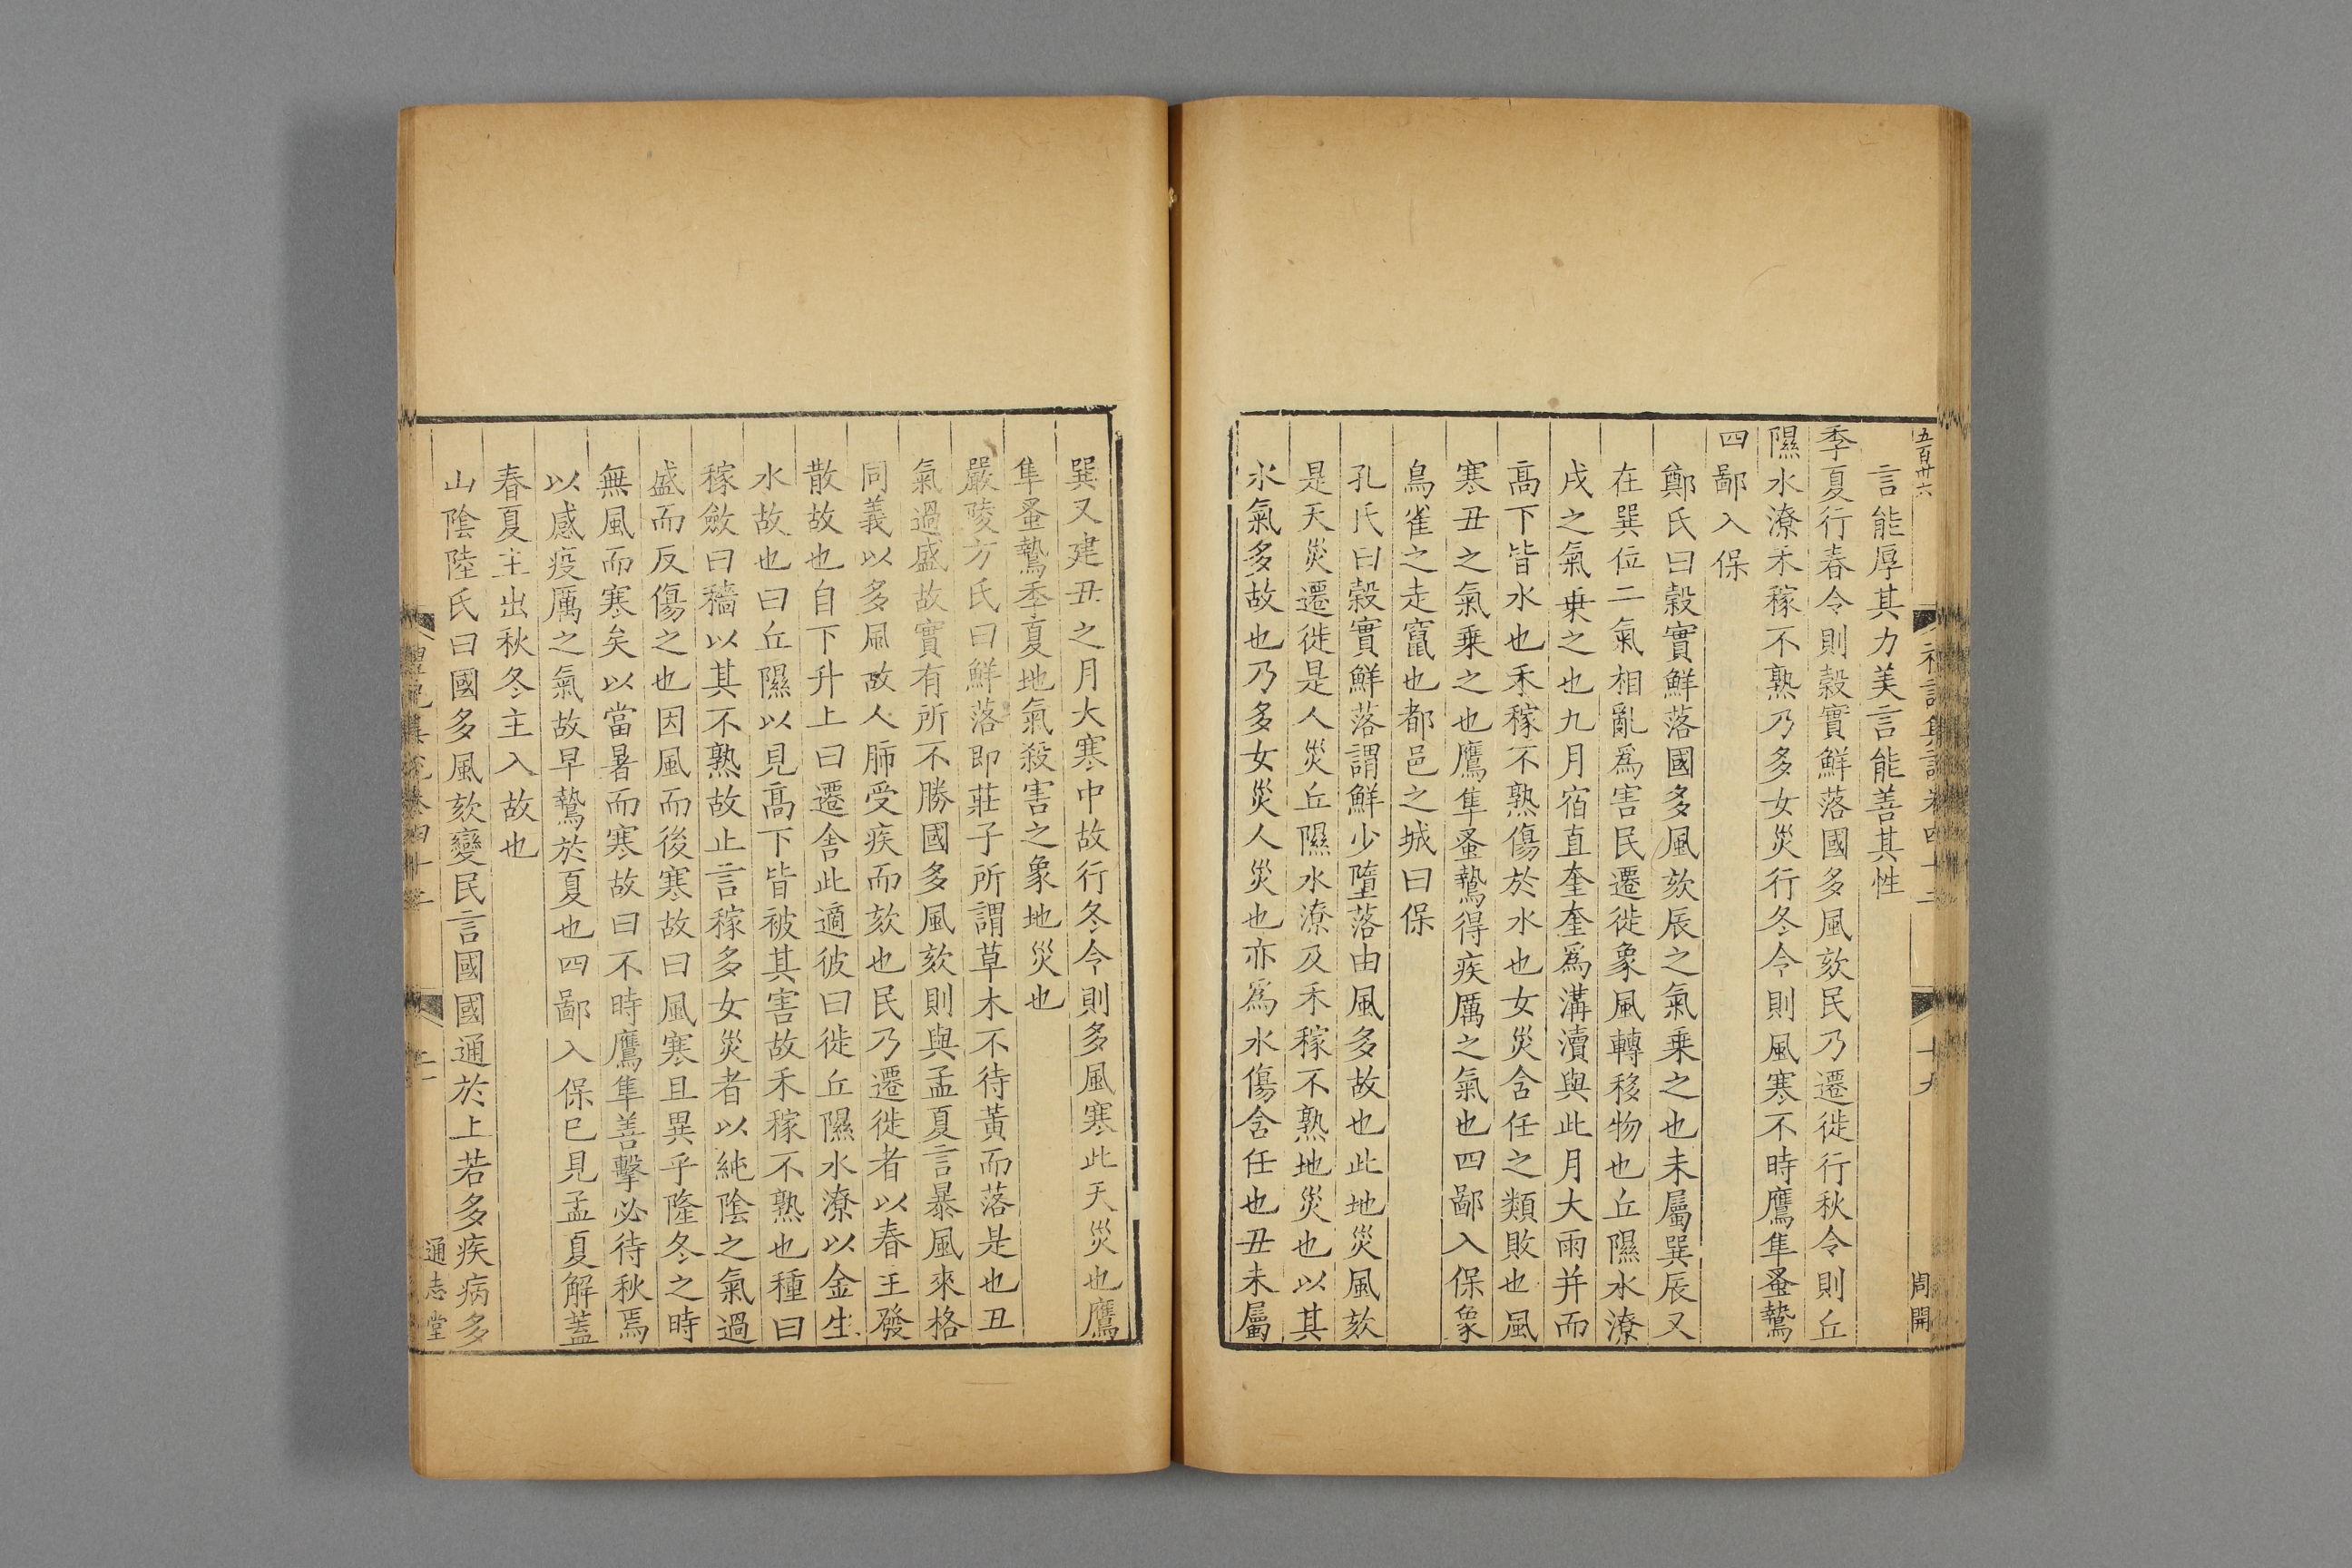 五百卅六
言能厚其力美言能善其性
季夏行春令則穀實鮮落國多風欬民乃遷徙行秋令則丘
隰水潦禾稼不熟乃多女災行冬令則風寒不時鷹隼蚤鷙
四鄙入保
鄭氏曰穀實鮮落國多風欬辰之氣乗之也未屬巽辰又
在巽位二氣相亂爲害民遷徙象風轉移物也丘隰水潦
戌之氣乗之也九月宿直奎奎爲溝瀆與此月大雨并而
髙下皆水也禾稼不熟傷於水也女災含任之類敗也風
寒丑之氣乗之也鷹隼蚤鷙得疾厲之氣也四鄙入保象
鳥雀之走竄也都邑之城曰保
孔氏曰穀實鮮落謂鮮少墮落由風多故也此地災風欬
是天災遷徙是人災丘隰水潦及禾稼不熟地災也以其
水氣多故也乃多女災人災也亦爲水傷含任也丑未屬
周開
巽又建丑之月大寒中故行冬令則多風寒此天災也鷹
隼蚤鷙季夏地氣殺害之象地災也
嚴陵方氏曰鮮落即莊子所謂草木不待黃而落是也丑
氣過盛故實有所不勝國多風欬則與孟夏言暴風來格
同義以多風故人肺受疾而欬也民乃遷徙者以春主發
散故也自下升上曰遷舍此適彼曰徙丘隰水潦以金生
水故也曰丘隰以見髙下皆被其害故禾稼不熟也種曰
稼斂曰穡以其不熟故止言稼多女災者以純陰之氣過
盛而反傷之也因風而後寒故曰風寒且異乎隆冬之時
無風而寒矣以當暑而寒故曰不時鷹隼善擊必待秋焉
以感疫厲之氣故早鷙於夏也四鄙入保已見孟夏解蓋
春夏主出秋冬主入故也
山陰陸氏曰國多風欬變民言國國通於上若多疾病多
通志堂